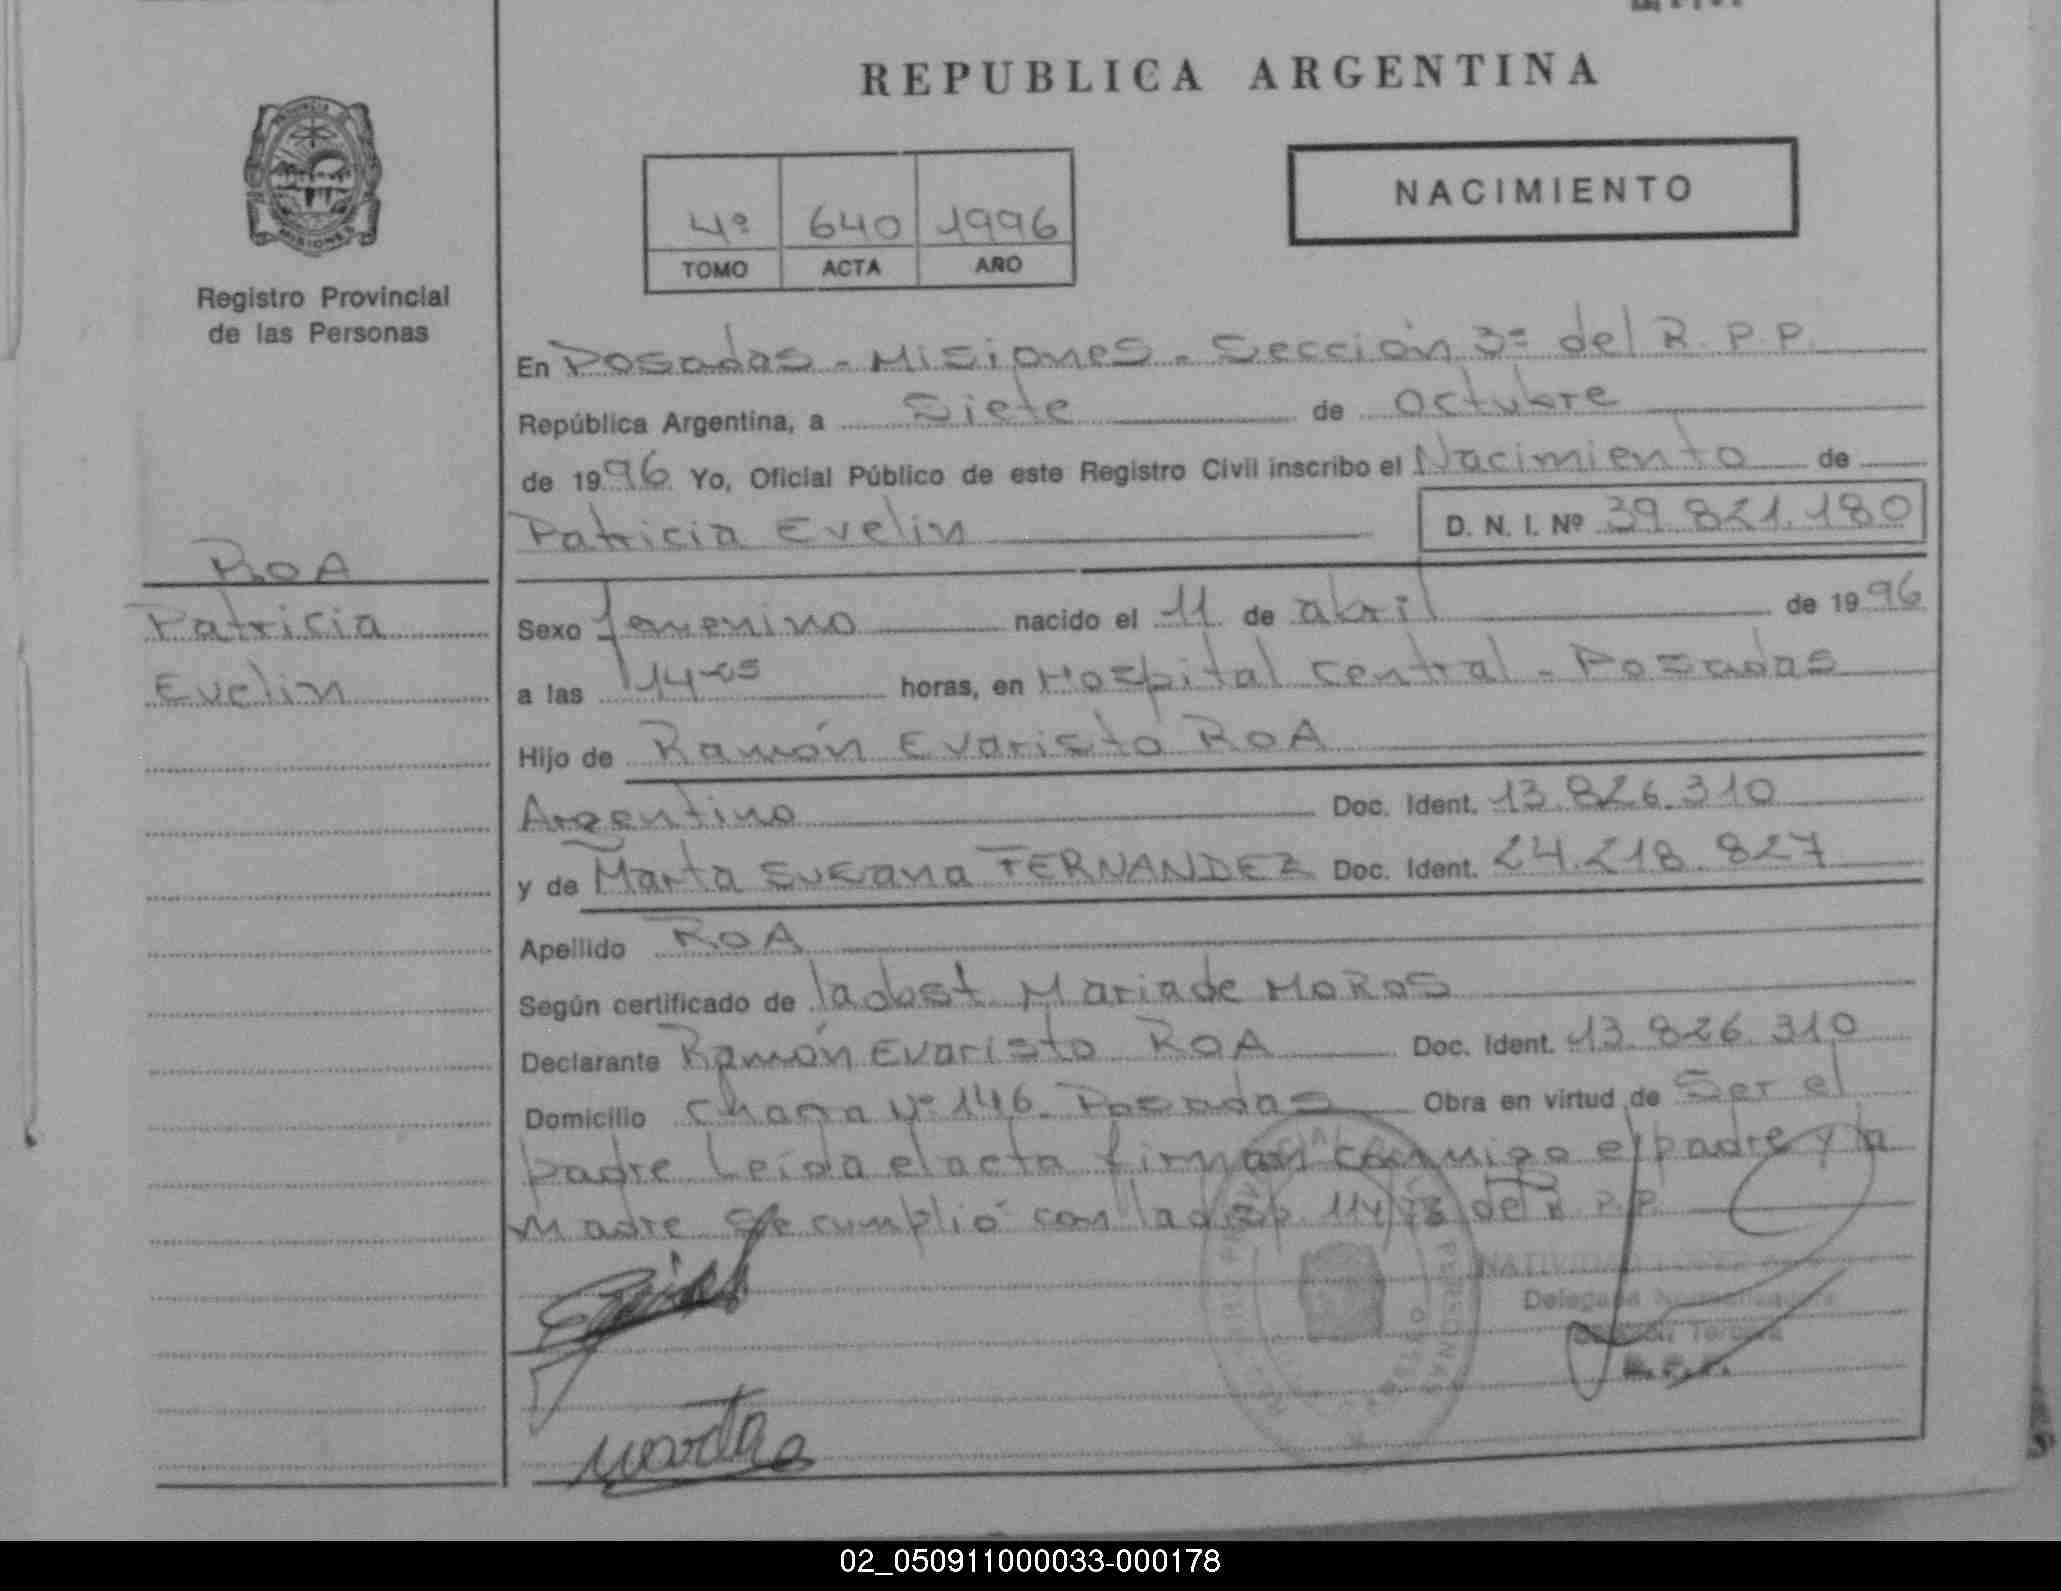 REPUBLICA ARGENTINA
PROVINCIA
MISIONES
Registro Provincial
de las Personas
4º 640 1996
TOMO ACTA AÑO
NACIMIENTO
En Posadas - Misiones - Sección 3ª del R. P. P.
República Argentina, a Siete de Octubre
de 1996 Yo, Oficial Público de este Registro Civil inscribo el Nacimiento de
Patricia Evelin D. N. I. Nº 39.821.180
ROA
Patricia
Evelin
Sexo femenino nacido el 11 de abril de 1996
a las 14-05 horas, en Hospital Central - Posadas
Hijo de Ramón Evaristo ROA
Argentino Doc. Ident. 13.826.310
y de Marta Susana FERNANDEZ Doc. Ident. 24.218.827
Apellido ROA
Según certificado de la obst Maria de MOROS
Declarante Ramón Evaristo ROA Doc. Ident. 13.826.310
Domicilio Chacra Nº 146 Posadas Obra en virtud de Ser el
padre Leída el acta firman conmigo el padre y la
Madre Se cumplió con la disp. 114/73 del R. P. P.
Delegada
Tercera
R.P.P.
PERSONAS
marta
02_050911000033-000178